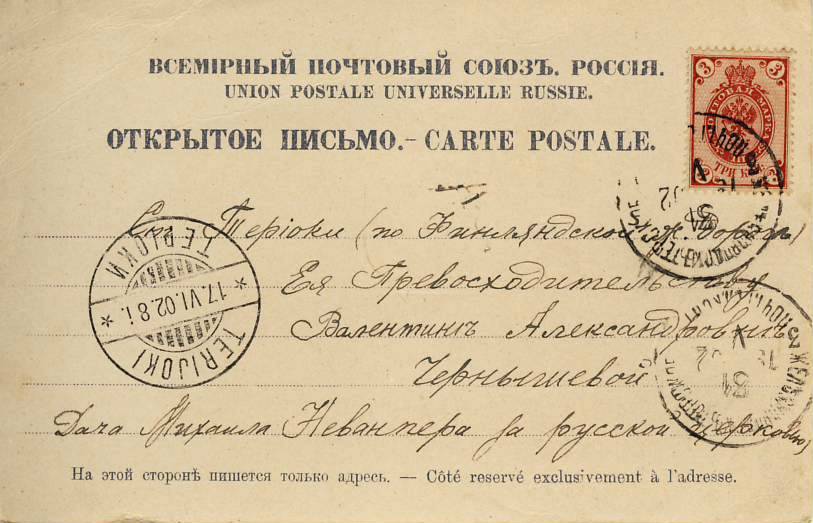 ВСЕМІРНЫЙ ПОЧТОВЫЙ СОЮЗЪ. РОССІЯ.
UNION POSTALE UNIVERSELLE RUSSIE.
ОТКРЫТОЕ ПИСЬМО.-CARTE POSTALE.
3 3
ПОЧТОВАЯ МАРКА
3 3
ТРИ КОП.
Ст. Теріоки (по Финляндской ж. дорогѣ)
Ея Превосходительству
Валентинѣ Александровнѣ
Чернышевой
Дача Михаила Неванпера за русской церковью)
ТЕРІОКИ
17.VI.02.8 i.
TERIJOKI
На этой сторонѣ пишется только адресъ. — Côté reservé exclusivement à l'adresse.